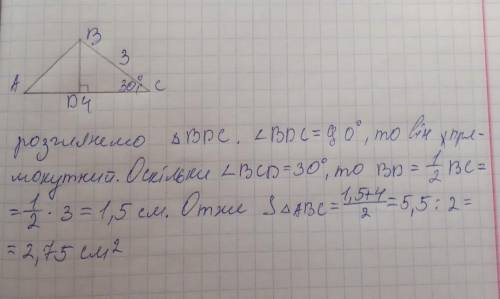 B
3
A 30° C
D 4
розглянемо △BDC. ∠BDC=90°, то він прямокутний. Оскільки ∠BCD=30°, то BD = 1/2 BC=
= 1/2 · 3 = 1,5 см. Отже S△ABC = (1,5+4)/2 = 5,5 : 2 =
= 2,75 см²